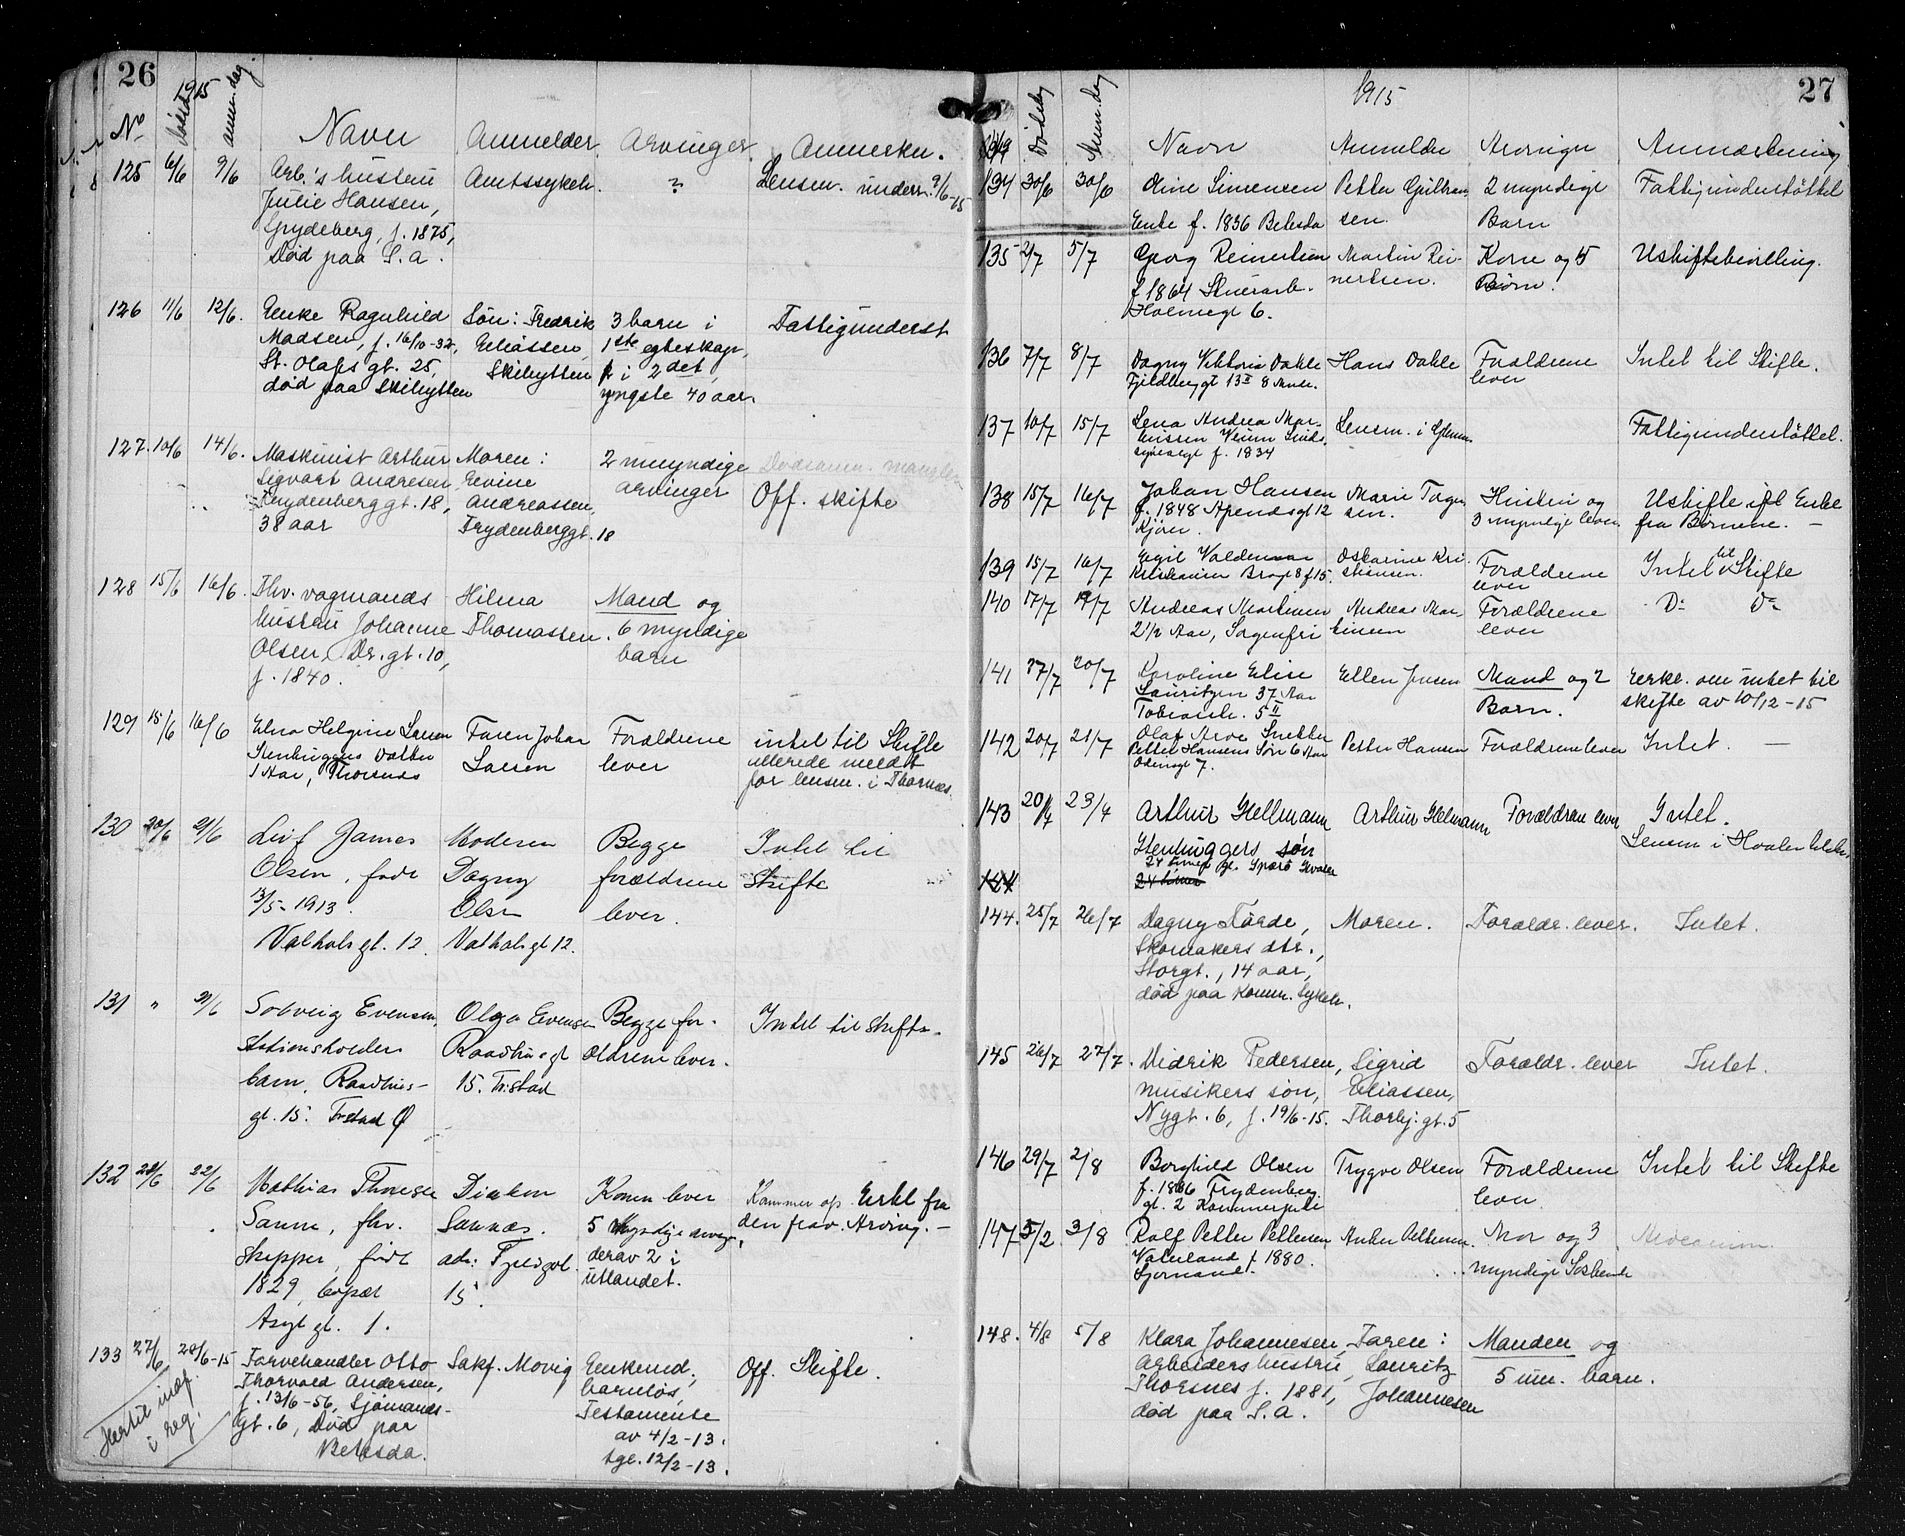 26
1915
No
Dødsd.
anm. dag.
Navn
Anmelder.
Arvinger.
Anmerkn.
125 6/6 9/6
Arb.'s hustru
Julie Hansen,
Grydeberg, f. 1875,
Død paa S.a.
Amtssykeh.
?
Lensm. underr. 9/6-15
126 11/6 12/6.
Enke Ragnhild
Madsen, f. 16/10-32,
St. Olafs gt. 25,
død paa Skihytten
Søn: Fredrik
Eliassen,
Skihytten
3 barn i
1ste egteskap,
i 2det,
yngste 40 aar.
Fattigunderst
127. 10/6 14/6.
Maskinist Arthur
Sigvart Andresen
Frydenberggt. 18,
38 aar
Moren:
Evine
Andreassen,
Frydenberggt. 18
2 umyndige
arvinger
Off. skifte
128 15/6 16/6.
Fhv. vognmands
hustru Johanne
Olsen, Dr. gt. 10,
f. 1840.
Hilma
Thomassen.
Mand og
6 myndige
barn
129 15/6 16/6
Elna Helgine Larsen
Stenhuggers Datter
1 Aar, Thorsnes
Faren Johan
Larsen
Forældrene
lever
intet til Skifte
allerede meldt
for lensm. i Thorsnes.
130 20/6 21/6
Leif James
Olsen, født
13/5-1913.
Valhals gt. 12.
Moderen
Dagny
Olsen
Valhals gt 12.
Begge
forældrene
lever.
Intet til
Skifte
131 " 21/6
Solveig Evensen,
Stationsholders
barn, Raadhus-
gt. 15. Fr.stad Ø
Olga Evensen
Raadhusgt
15. Fr.stad
Begge for-
ældrene lever.
Intet til skifte.
132 21/6 22/6
Mathias Thoresen
Sanne, fhv.
Skipper, født
1829, bopæl
Asyl gt. 1.
Diakon
Sannæs.
adr: Fjeldgt.
15.
Konen lever
5 Myndige arving,
derav 2 i
utlandet.
Kommer op. Erkl. fra
den frav. Arving. —
133 27/6 28/6-15
Hertil indf.
i reg.
Farvehandler Otto
Thorvald Andersen,
f. 13/6-56, Sjømands-
gt. 6, Død paa
Betesda.
Sakf. Movig
Enkemd,
barnløs,
Testamente
av 4/2-13.
tgl. 12/2-13.
Off. Skifte.
27
1915
Dødsdg
Anm. dag
Navn
Anmelder
Arvinger
Anmærkning
134 30/6 30/6
Oline Simensen
Enke f. 1836 Betesda
Petter Gulbran
sen.
2 myndige
Barn
Fattigunderstøttet
135 2/7 5/7
Georg Reinertsen
f 1864 Stuerarb.
Holmegt 6.
Martin Rei-
nertsen.
Kone og 5
Børn.
Uskiftebevilling.
136 7/7 8/7
Dagny Viktoria Dahle
Fjeldberggt 13II 8 Mndr.
Hans Dahle
Forældrene
lever
Intet til Skifte.
137 10/7 15/7
Lena Andrea Mar-
f. 1834
Lensm. i Glemm.
Fattigunderstøttet.
138 15/7 16/7
Johan Hansen
f. 1848 Apenæsgt 12
Kjører.
Marie Torger
sen.
Hustru og
3 myndige lever.
Uskifte ifl Erkl.
fra Børnene. —
139 15/7 16/7
Eigil Valdemar
Kristiansen Brogt 8 f 15.
Oskarine Kri
stiansen.
Forældrene
lever
Intet til Skifte
140 17/7 19/7
Andreas Martinsen
2 1/2 Aar, Sorgenfri
Andreas Mar-
tinsen
Forældrene
lever
Do Do
141 17/7 20/7
Karoline Elise
Lauritzen 37 Aar
5II
Ellen Jensen
Mand og 2
Barn.
Erkl. om intet til
skifte av 10/12-15
142 20/7 21/7
Olaf Arve Snekker
Petter Hansens Søn 6 Aar
Odinsgt 7.
Petter Hansen
Forældrene lever
Intet. —
143 20/7 23/7
Arthur Hellmann
Stenhuggers søn
24 timer gl. Spærø Hvaler
24 timer
Arthur Helmann
Forældrene lever
Intet.
Lensm i Hvaler
144
144. 25/7 26/7
Dagny Førde,
Skomakers dtr.,
Storgt., 14 aar,
død paa Komm. Sykeh.
Moren.
Forældr. lever.
Intet.
145 26/7 27/7.
Didrik Pedersen,
musikers søn,
Nygt. 6, f. 19/6-15.
Sigrid
Eliassen,
Thorbj. gt. 5
Forældr. lever
Intet.
146 29/7 2/8
Borghild Olsen
f. 1886 Frydenberg
gt. 2
Trygve Olsen
Forældrene
lever.
Intet til Skifte
147 5/2 3/8
Rolf Petter Pettersen
Vaterland f 1880.
Sjømand.
Anker Pettersen.
Mor og 3
myndige Søskende
148. 4/8 5/8
Klara Johannesen,
Arbeiders hustru,
Thorsnes f. 1881,
død paa S.a.
Faren:
Lauritz
Johannesen
Manden og
5 um. barn.